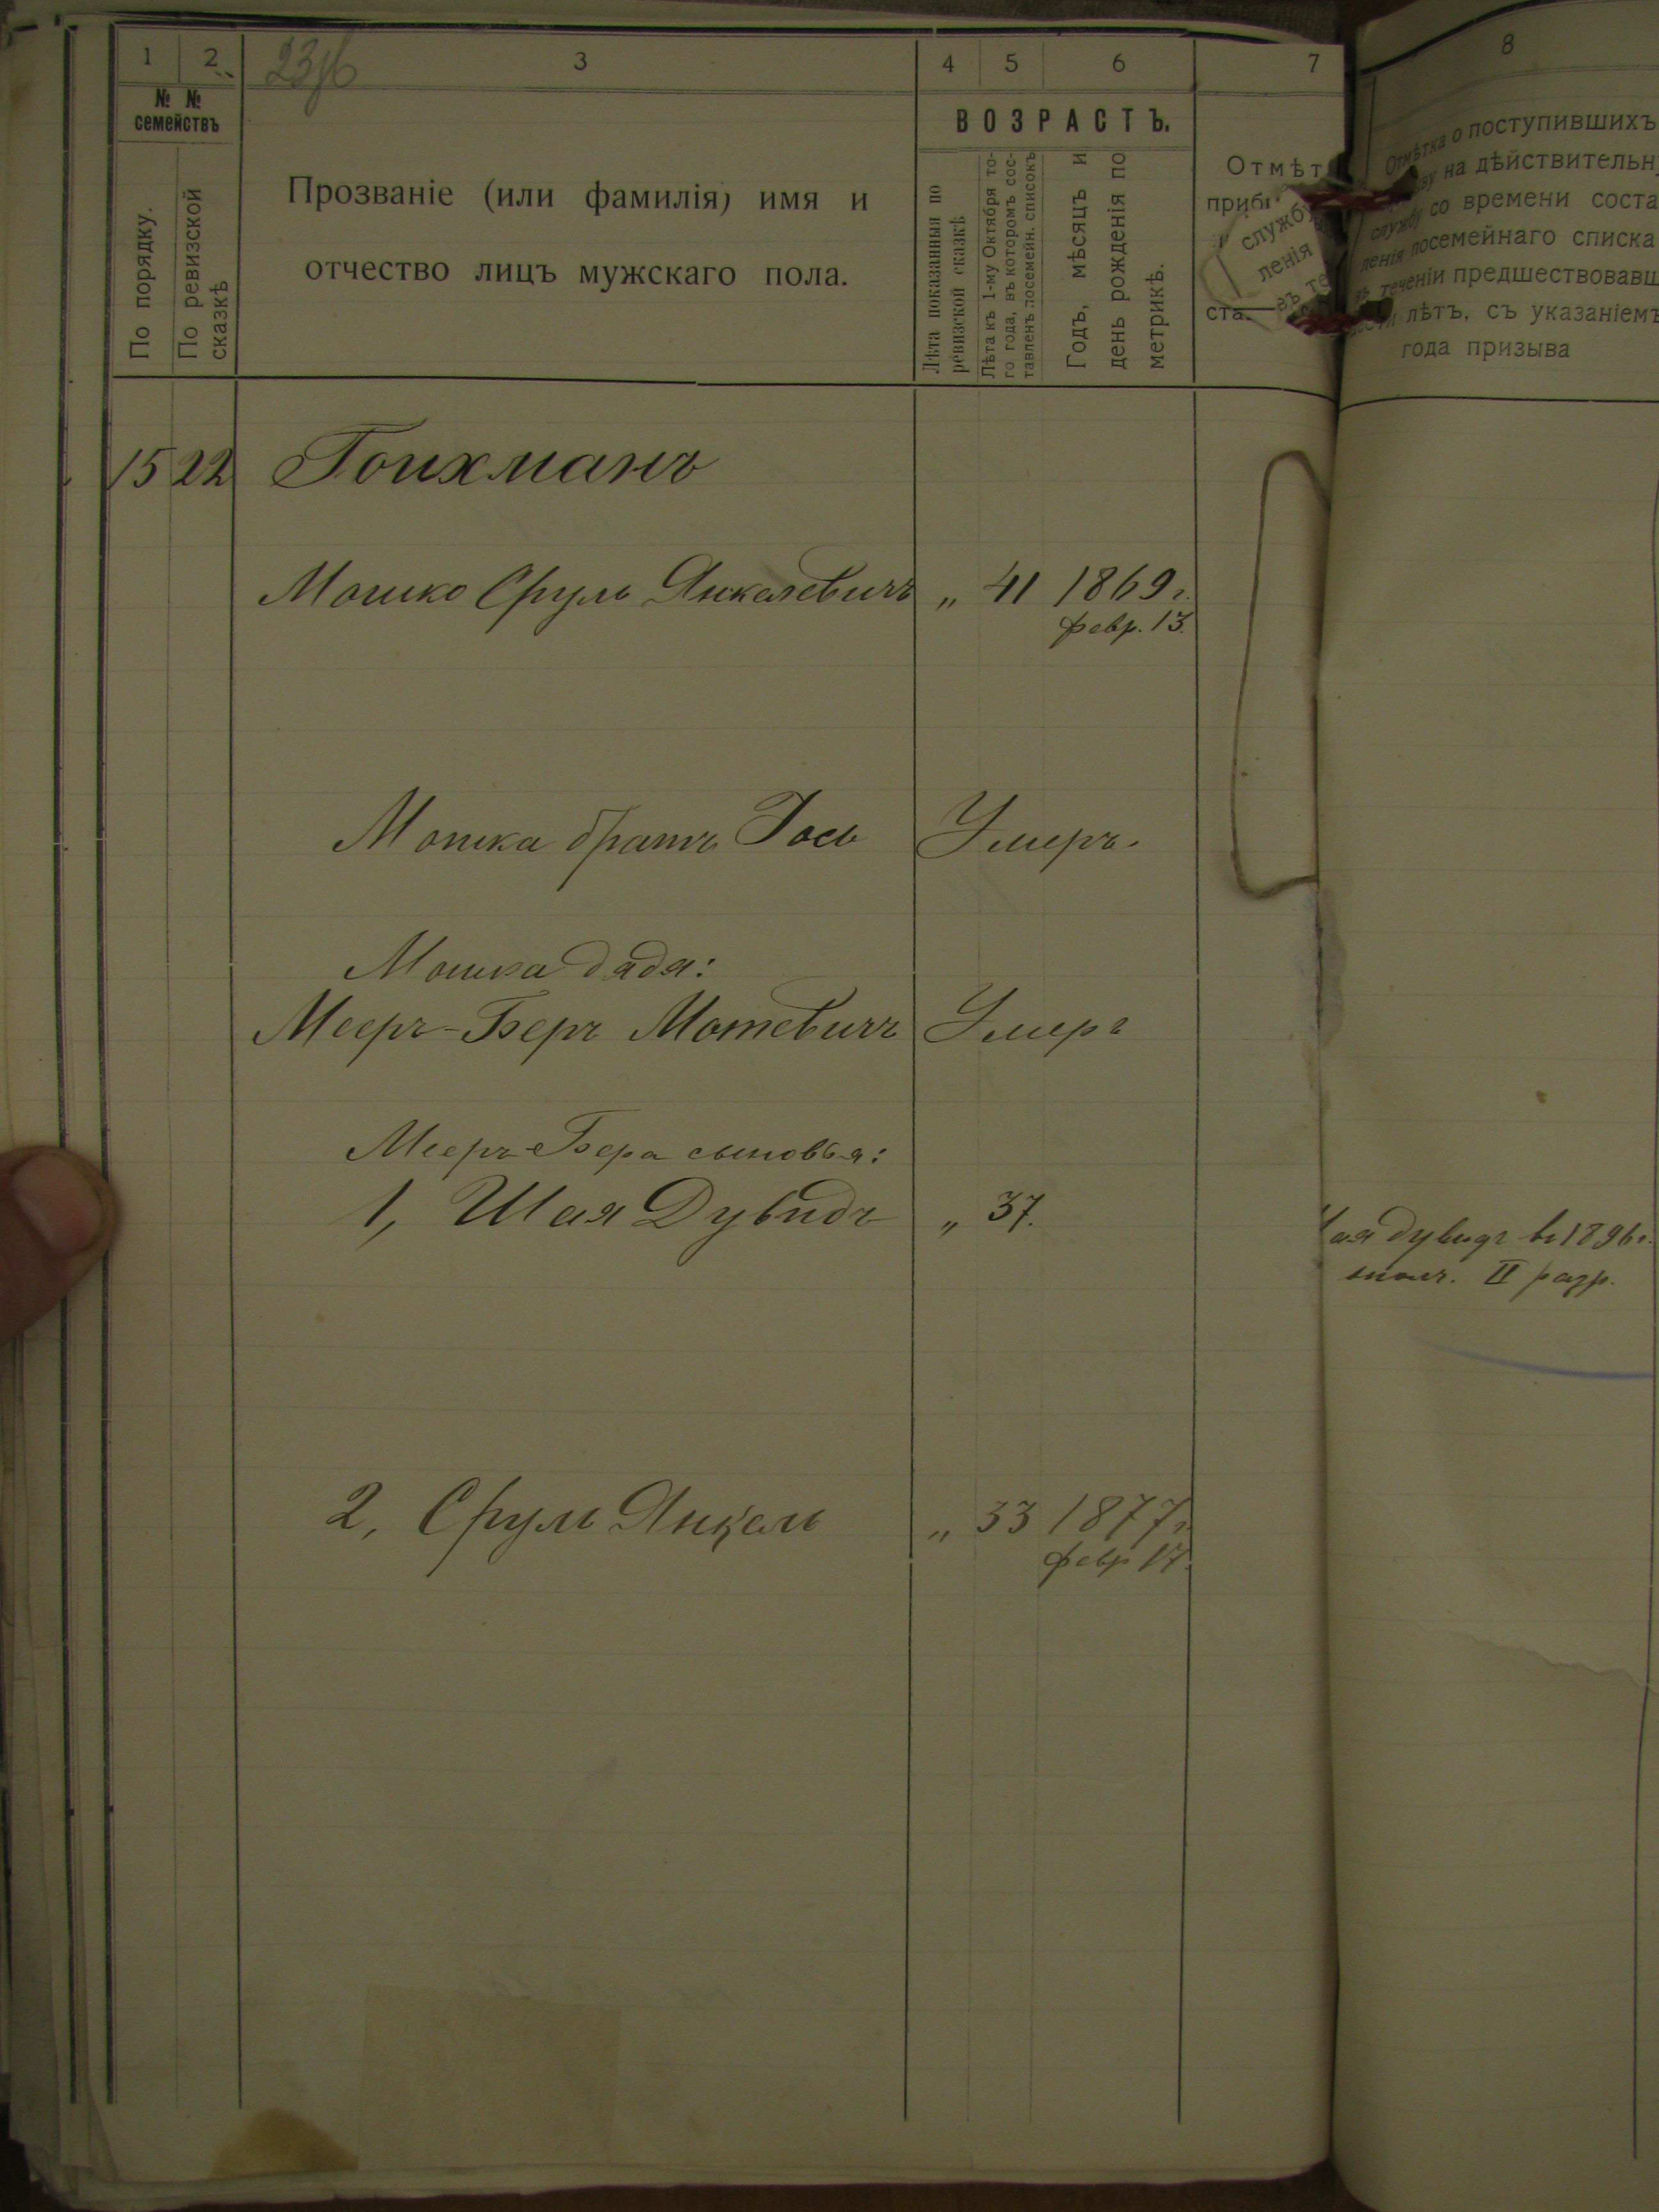 1 2 3 4 5 6 7
№ №
семействъ
По порядку.
По ревизской
сказкѣ
Прозваніе (или фамилія) имя и
отчество лицъ мужскаго пола.
ВОЗРАСТЪ.
Лѣта показанныя по
ревизской сказкѣ
Лѣта къ 1-му Октября то-
го года, въ которомъ сос-
тавленъ посемейн. списокъ
Годъ, мѣсяцъ и
день рожденія по
метрикѣ.
Отмѣт
приб
службу
ленія
въ те
ста
15 22 Гоихманъ
Мошко Сруль Янкелевичъ „ 41 1869 г.
февр. 13.
Мошка братъ Іось Умеръ.
Мошка дядя:
Мееръ-Беръ Мотевичъ Умеръ
Мееръ-Бера сыновья:
1, Шая Дувидъ „ 37.
2, Сруль Янкель „ 33 1877 г.
февр 17.
8
Отмѣтка о поступившихъ
на дѣйствительн
службу со времени соста
ленія посемейнаго списка
въ теченіи предшествовавш
лѣтъ, съ указаніемъ
года призыва
ая Дувидъ въ 1896 г.
II разр.